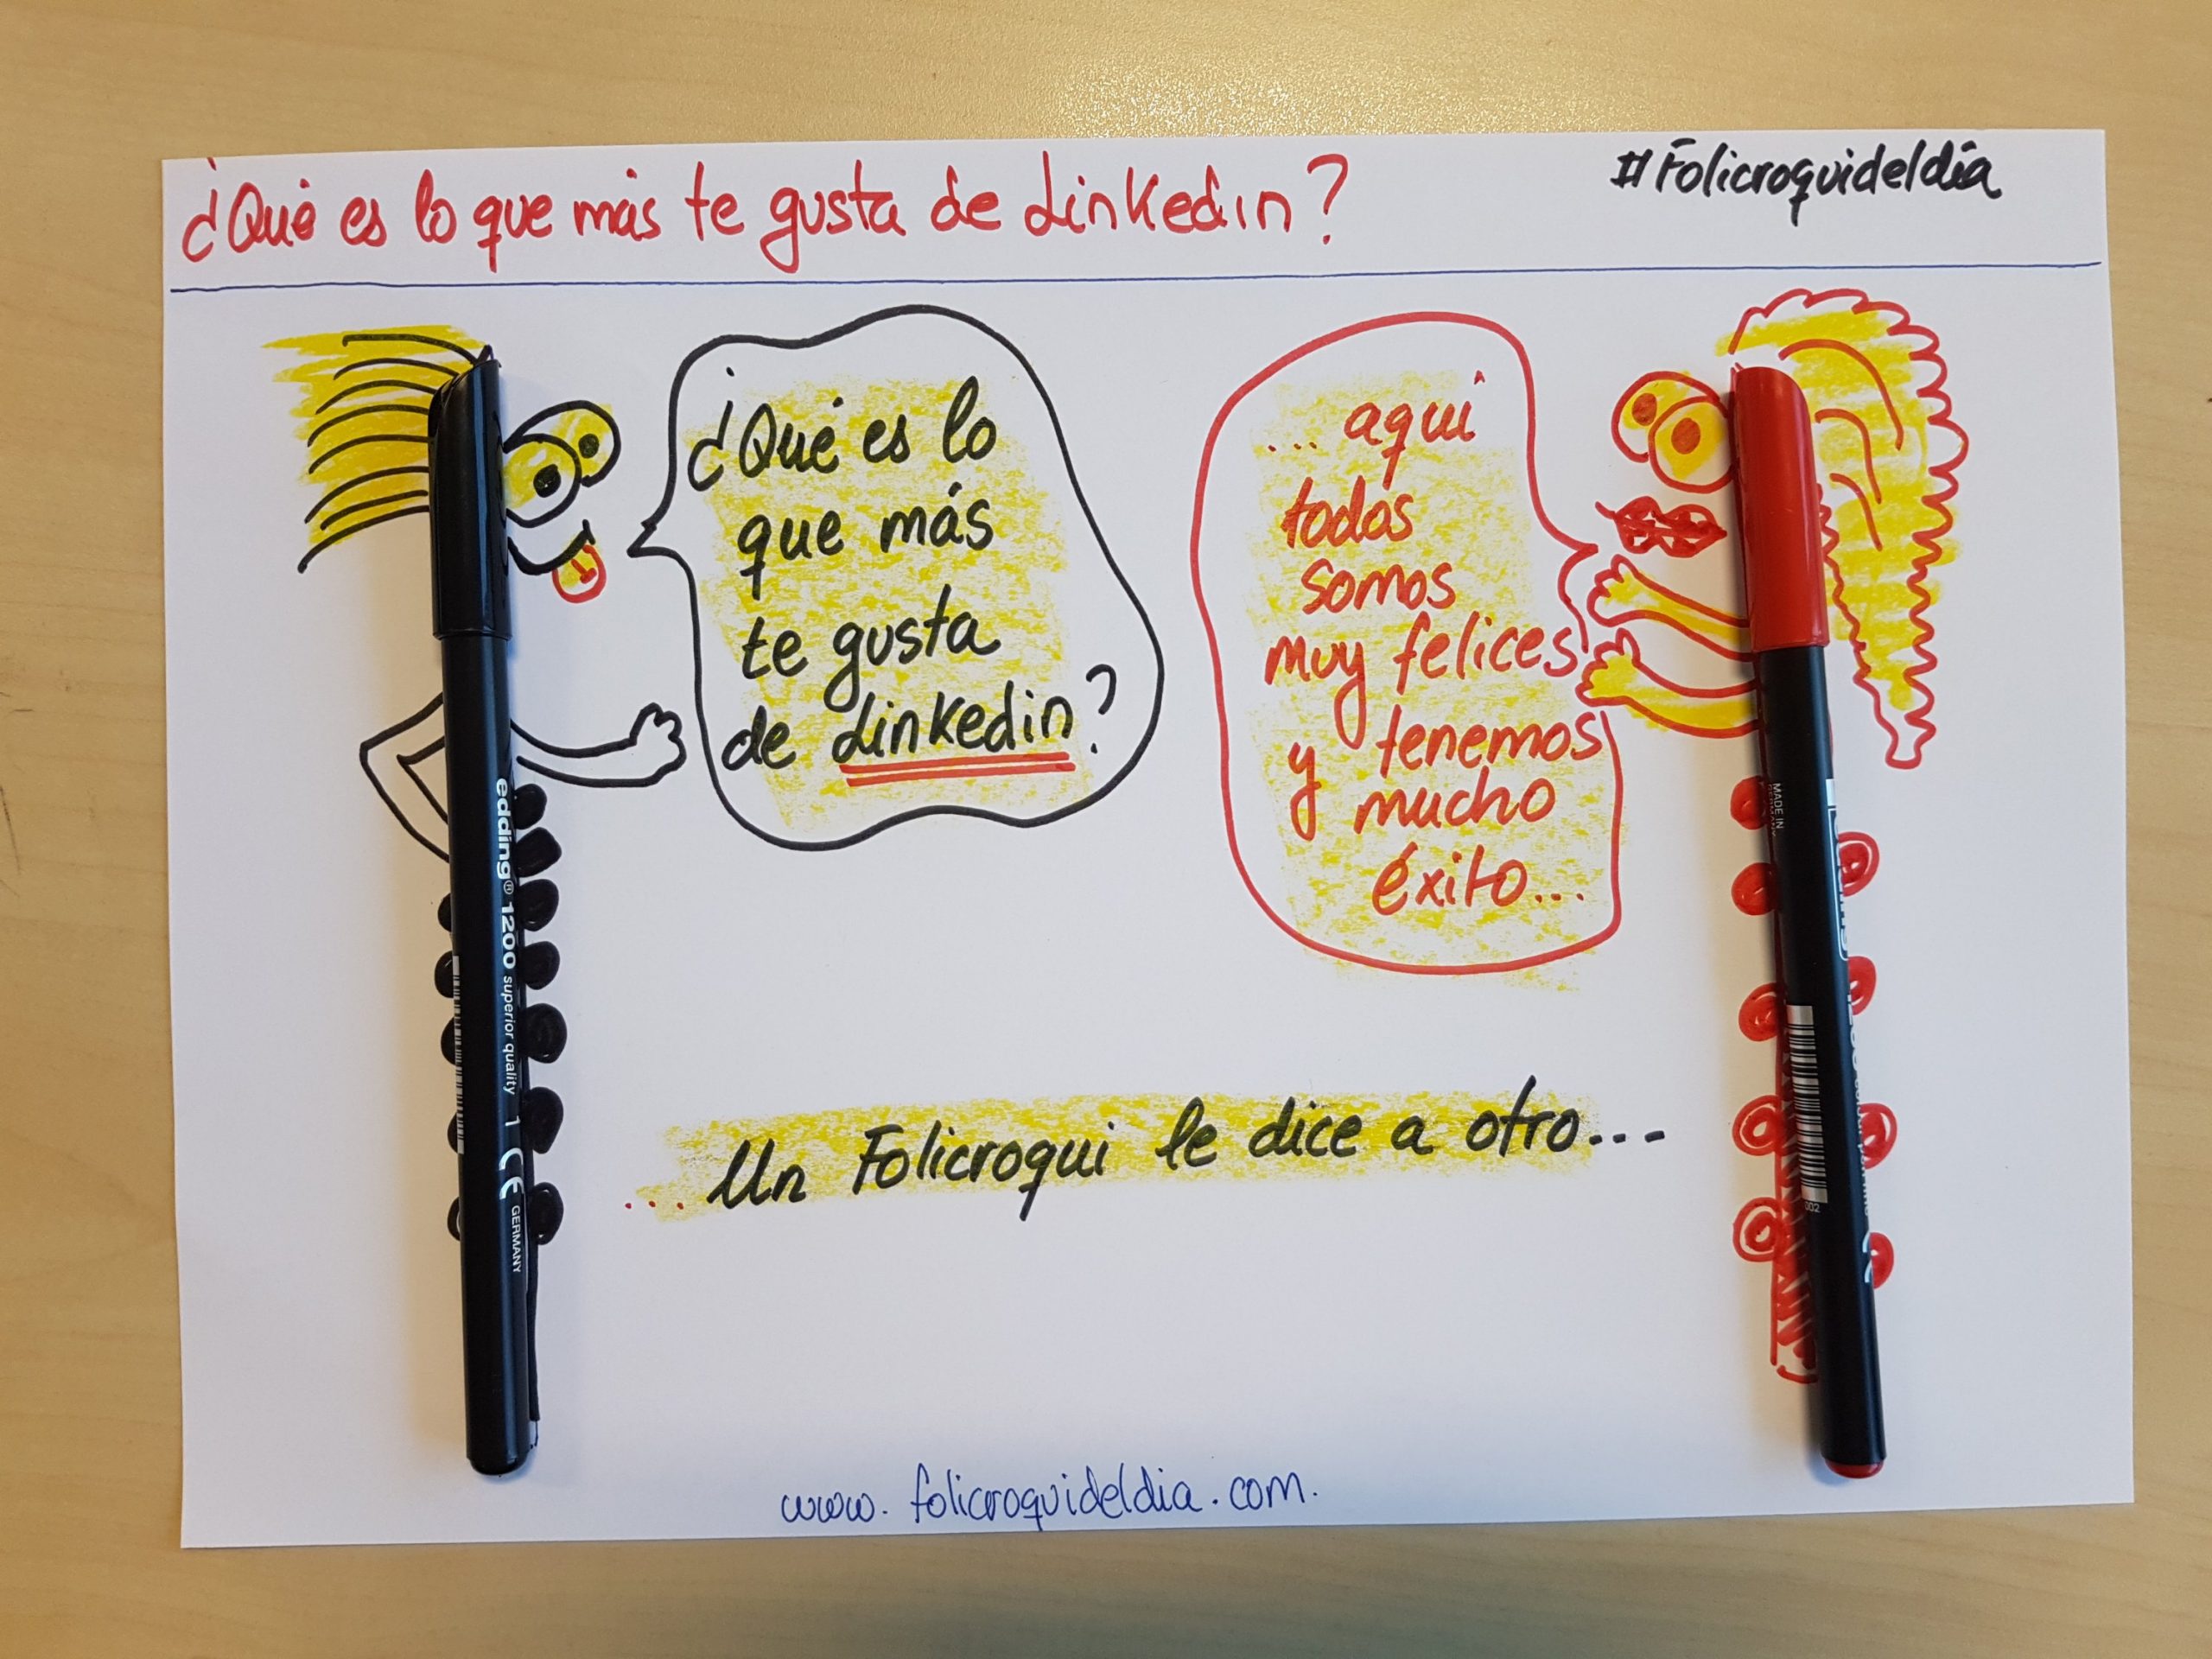 ¿Qué es lo que más te gusta de Linkedin?
#Folicroquideldía
¿Qué es lo
que más
te gusta
de Linkedin?
... aquí
todos
somos
muy felices
y tenemos
mucho
éxito...
... Un Folicroqui le dice a otro...
www.folicroquideldia.com.
edding® 1200 superior quality 1 CE GERMANY
MADE IN